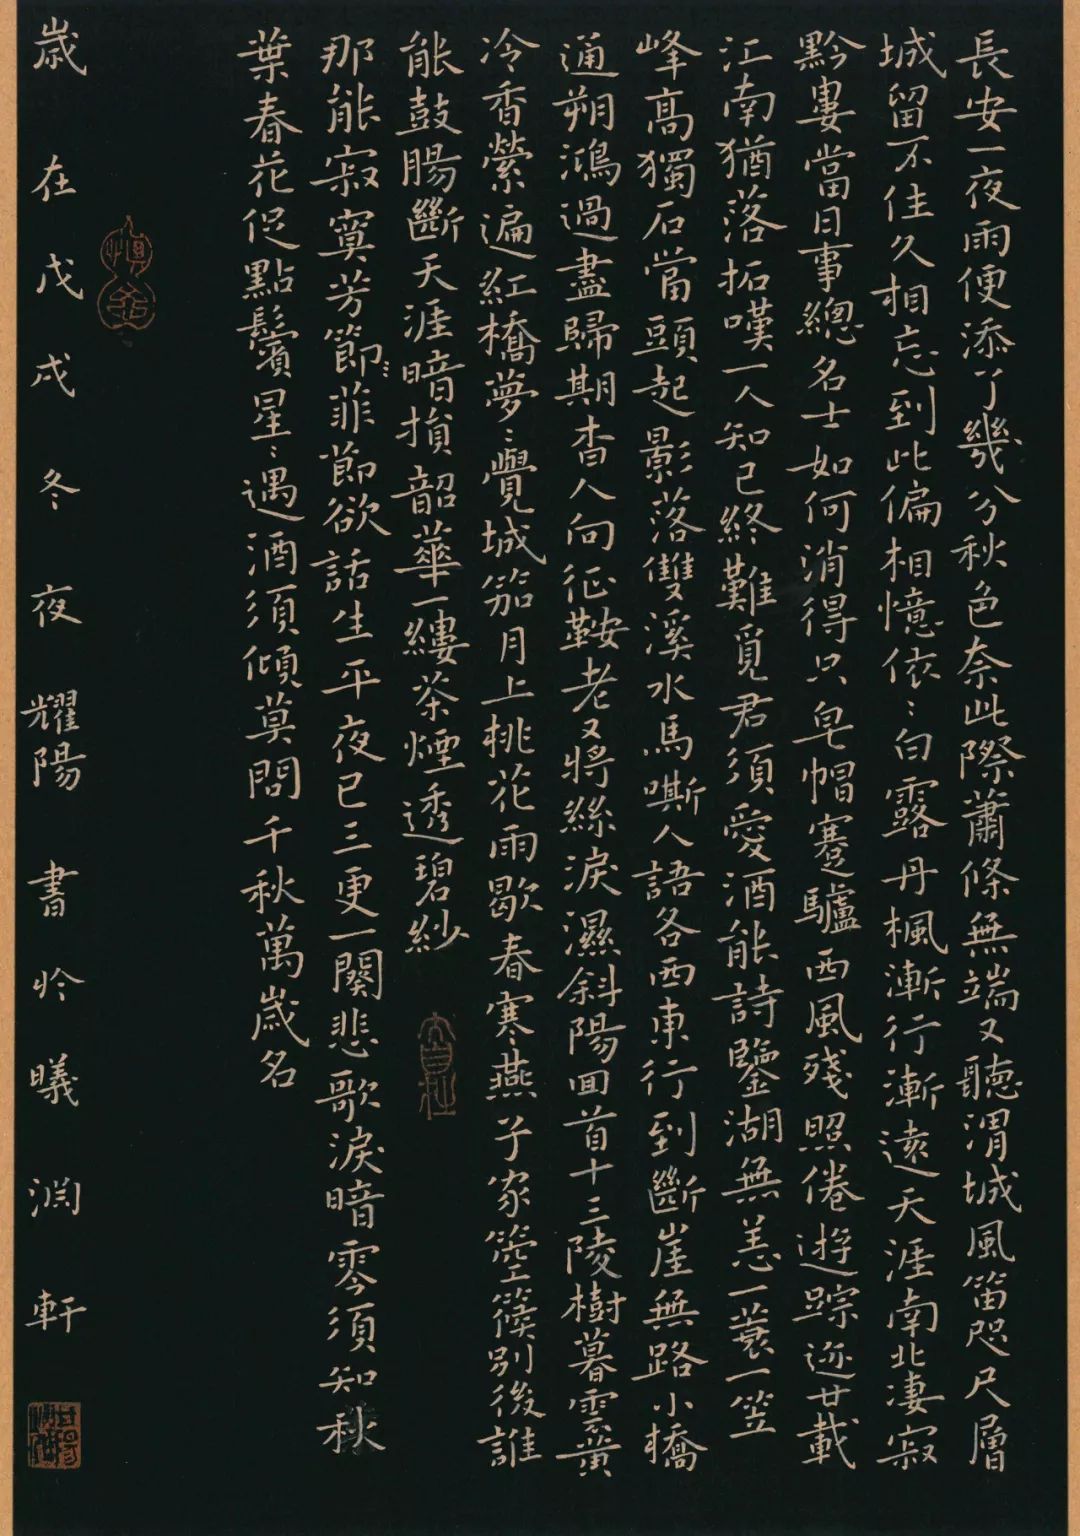 長安一夜雨便添了幾分秋色奈此際蕭條無端又聽渭城風笛咫尺層
城留不住久相忘到此偏相憶依〻白露丹楓漸行漸遠天涯南北淒寂
黔婁當日事總名士如何消得只皂帽蹇驢西風殘照倦遊踪迹廿載
江南猶落拓嘆一人知己終難覓君須愛酒能詩鑒湖無恙一蓑一笠
峰高獨石當頭起影落雙溪水馬嘶人語各西東行到斷崖無路小橋
通朔鴻過盡歸期杳人向征鞍老又將絲淚濕斜陽回首十三陵樹暮雲黃
冷香縈遍紅橋夢〻覺城笳月上桃花雨歇春寒燕子家箜篌別後誰
能鼓腸斷天涯暗損韶華一縷茶煙透碧紗
那能寂寞芳節〻菲節欲話生平夜已三更一闋悲歌淚暗零須知秋
葉春花促點鬢星〻遇酒須傾莫問千秋萬歲名
歲在戊戌冬夜耀陽書於曦淵軒